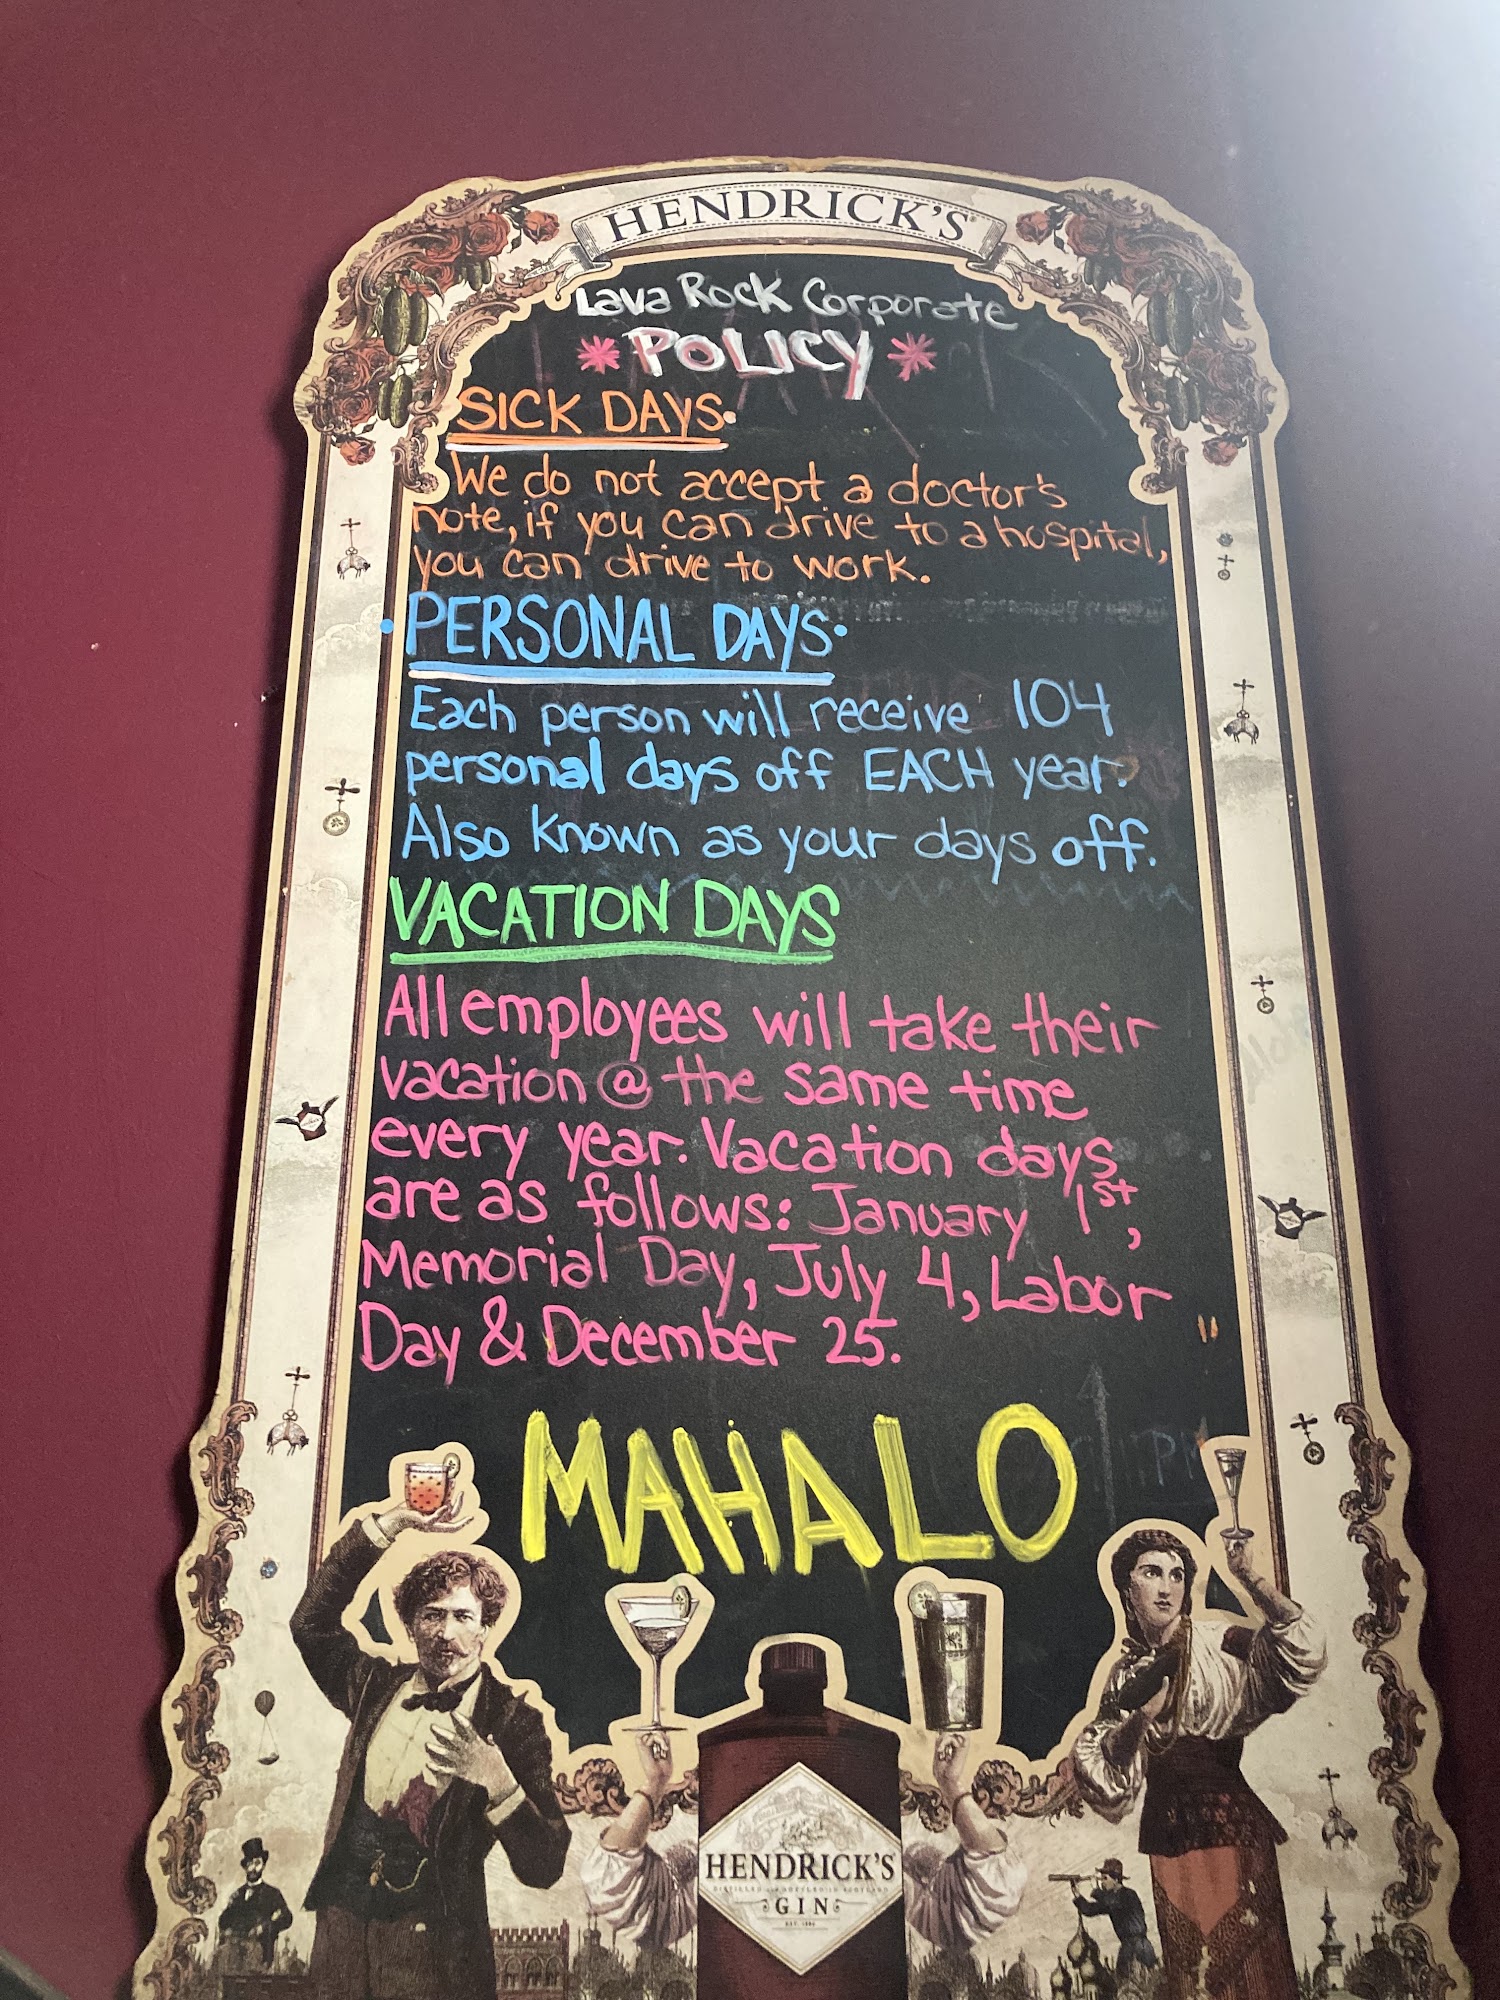 HENDRICK'S
Lava Rock Corporate
* POLICY *
SICK DAYS.
We do not accept a doctor's
note, if you can drive to a hospital,
you can drive to work.
• PERSONAL DAYS •
Each person will receive 104
personal days off EACH year.
Also known as your days off.
VACATION DAYS
All employees will take their
vacation @ the same time
every year. Vacation days
are as follows: January 1st,
Memorial Day, July 4, Labor
Day & December 25.
MAHALO
HENDRICK'S
DISTILLED AND BOTTLED IN SCOTLAND
GIN